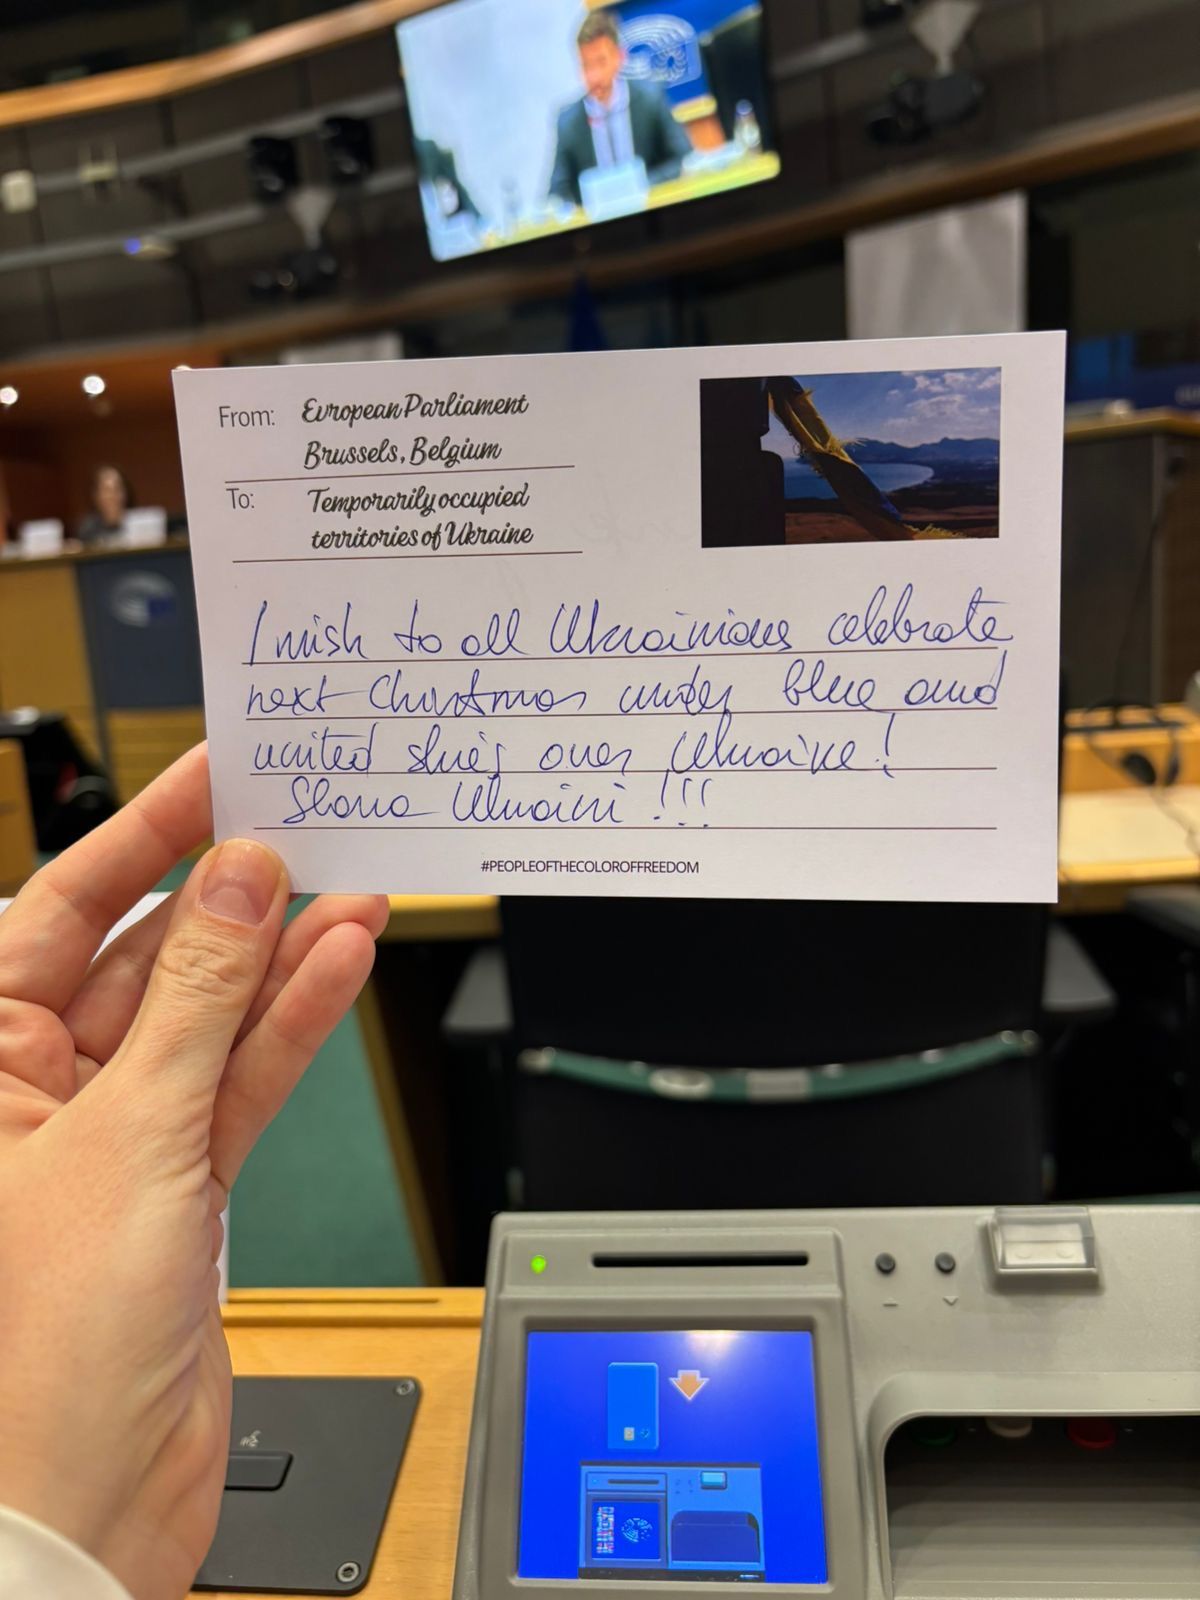 From: European Parliament
Brussels, Belgium
To: Temporarily occupied
territories of Ukraine
I wish to all Ukrainians celebrate
next Christmas under blue and
united skies over Ukraine!
Slava Ukraini !!!
#PEOPLEOFTHECOLOROFFREEDOM